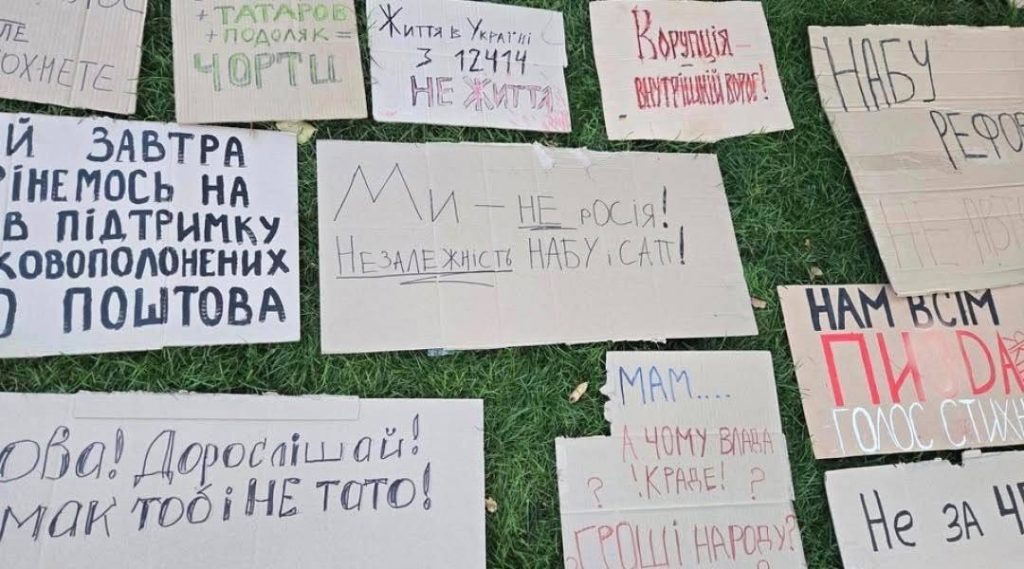 ОХНЕТЕ
+ ТАТАРОВ
+ ПОДОЛЯК =
ЧОРТИ
Життя в Україні
З 12414
НЕ ЖИТТЯ
Корупція —
внутрішній ворог!
НАБУ
РЕФО
НЕ
Й ЗАВТРА
РІНЕМОСЬ НА
В ПІДТРИМКУ
КОВОПОЛОНЕНИХ
ПОШТОВА
Ми — НЕ росія!
Незалежність НАБУ і САП!
НАМ ВСІМ
ПИЗDА
ГОЛОС СТИХН
ОВА! Дорослішай!
мак тобі НЕ тато!
МАМ....
А ЧОМУ ВЛАДА
? !КРАДЕ! ?
ГРОШІ НАРОДУ?
Не за Ч